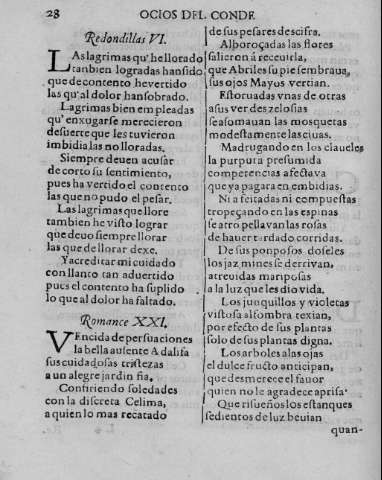 28 OCIOS DEL CONDE
Redondillas VI.
LAs lagrimas qu'he llorado
tanbien logradas han sido
que de contento he vertido
las qu'al dolor han sobrado.
Lagrimas bien empleadas
qu'enxugarse merecieron
de suerte que les tuvieron
imbidia las no lloradas.
Siempre deuen acusar
de corto su sentimiento,
pues ha vertido el contento
las que no pudo el pesar.
Las lagrimas que llore
tambien he visto lograr
que deuo siempre llorar
las que de llorar dexe.
Y acreditar mi cuidado
con llanto tan aduertido
pues el contento ha suplido
lo que al dolor ha faltado.
Romance XXI.
VEncida de persuaciones
la bella ausente Adalifa
sus cuidadosas tristezas
a un alegre jardin fia,
Confiriendo soledades
con la discreta Celima,
a quien lo mas recatado
de sus pesares descifra.
Alboroçadas las flores
salieron à receuirla,
que Abriles su pie sembraua,
sus ojos Mayos vertian.
Estoruadas vnas de otras
a sus verdes zelosias
se asomauan las mosquetas
modestamente lasciuas.
Madrugando en los claueles
la purpura presumida
competencias afectava
que ya pagara en embidias.
Ni afeitadas ni compuestas
tropeçando en las espinas
se atropellavan las rosas
de hauer tardado corridas.
De sus pomposos doseles
los jazmines se derrivan,
atreuidas mariposas
a la luz que les dio vida.
Los junquillos y violetas
vistosa alfombra texian,
por efecto de sus plantas
solo de sus plantas digna.
Los arboles a las ojas
el dulce fructo anticipan,
que desmerece el fauor
quien no le agradece aprisa.
Que risueños los estanques
sedientos de luz beuian
quan-